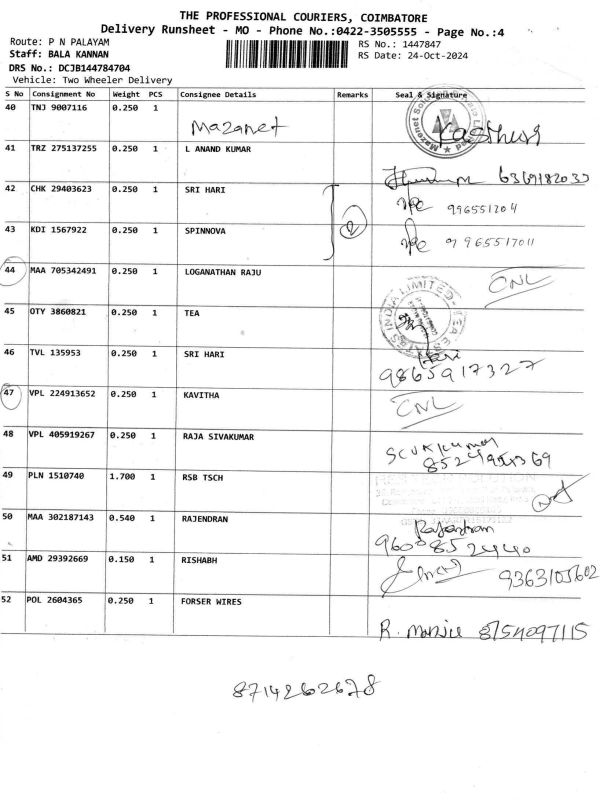 THE PROFESSIONAL COURIERS, COIMBATORE
Delivery Runsheet - MO - Phone No.:0422-3505555 - Page No.:4
Route: P N PALAYAM RS No.: 1447847
Staff: BALA KANNAN RS Date: 24-Oct-2024
DRS No.: DCJB144784704
Vehicle: Two Wheeler Delivery
S No Consignment No Weight PCS Consignee Details Remarks Seal & Signature
40 TNJ 9007116 0.250 1 Mazanet
41 TRZ 275137255 0.250 1 L ANAND KUMAR
42 CHK 29403623 0.250 1 SRI HARI 996551704
43 KDI 1567922 0.250 1 SPINNOVA
44 MAA 705342491 0.250 1 LOGANATHAN RAJU CNL
45 OTY 3860821 0.250 1 TEA
46 TVL 135953 0.250 1 SRI HARI Hari
9865917327
47 VPL 224913652 0.250 1 KAVITHA CNL
48 VPL 405919267 0.250 1 RAJA SIVAKUMAR
49 PLN 1510740 1.700 1 RSB TSCH
50 MAA 302187143 0.540 1 RAJENDRAN Rajendran
9600852440
51 AMD 29392669 0.150 1 RISHABH 9363105602
52 POL 2604365 0.250 1 FORSER WIRES
8754097115
8714262678